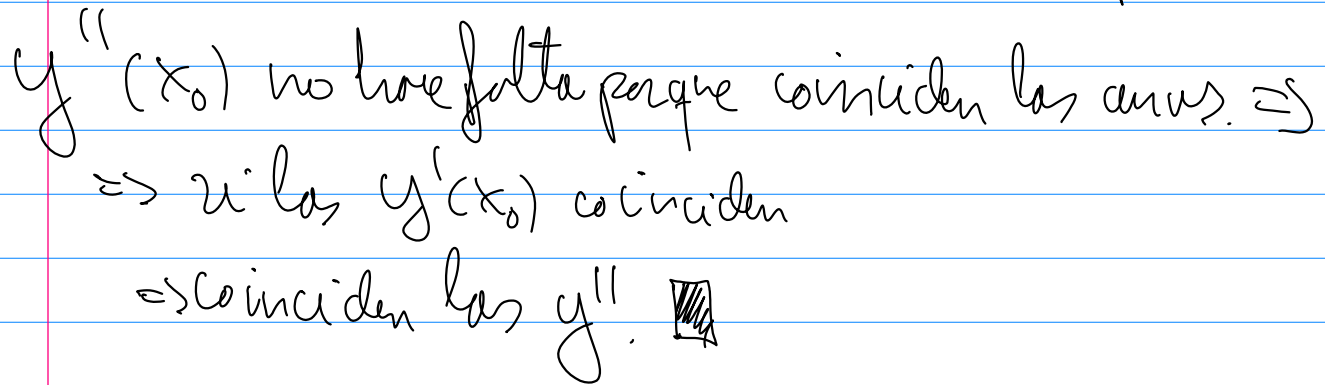 y''(x₀) no hace falta porque coinciden las curvas. =>
=> si las y'(x₀) coinciden
=> coinciden las y''.